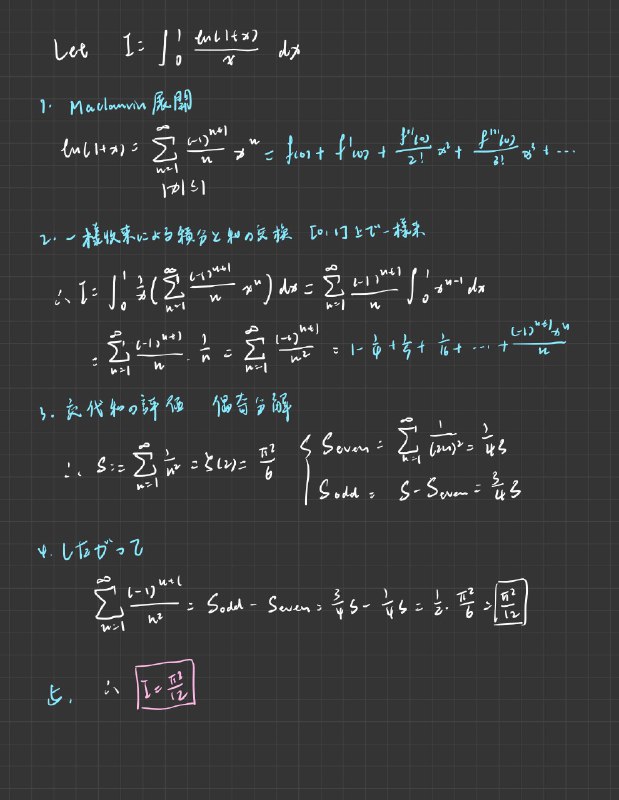 Let I = ∫_0^1 ln(1+x)/x dx
1. Maclaurin 展開
ln(1+x) = Σ_{n=1}^{∞} (-1)^{n+1}/n x^n = f(0) + f'(0) + f''(0)/2! x² + f'''(0)/3! x³ + ...
|x| ≤ 1
2. 一様収束による積分と和の交換 [0,1]上で一様
∴ I = ∫_0^1 1/x (Σ_{n=1}^{∞} (-1)^{n+1}/n x^n) dx = Σ_{n=1}^{∞} (-1)^{n+1}/n ∫_0^1 x^{n-1} dx
= Σ_{n=1}^{∞} (-1)^{n+1}/n · 1/n = Σ_{n=1}^{∞} (-1)^{n+1}/n² = 1 - 1/4 + 1/9 + 1/16 + ... + (-1)^{n+1} x^n/n
3. 交代和の評価 偶奇分解
∴ S := Σ_{n=1}^{∞} 1/n² = ζ(2) = π²/6 { S_even = Σ_{n=1}^{∞} 1/(2n)² = 1/4 S
S_odd = S - S_even = 3/4 S
4. したがって
Σ_{n=1}^{∞} (-1)^{n+1}/n² = S_odd - S_even = 3/4 S - 1/4 S = 1/2 · π²/6 = π²/12
5. ∴ I = π²/12